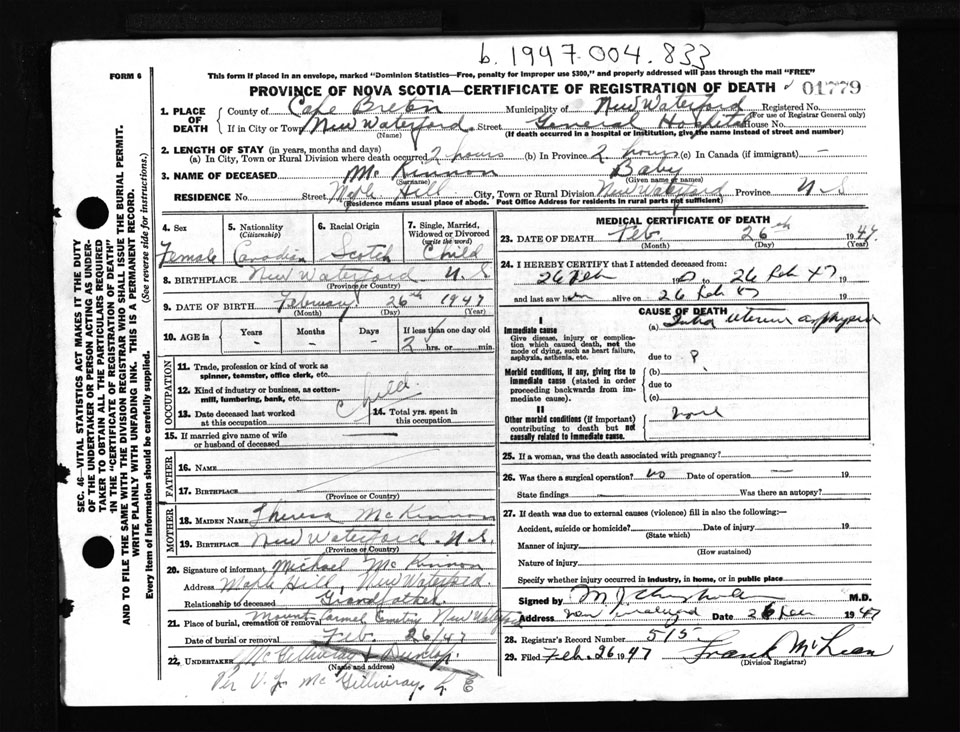 b. 1947.004.833
FORM 6
This form if placed in an envelope, marked "Dominion Statistics—Free, penalty for improper use $300," and properly addressed will pass through the mail "FREE"
PROVINCE OF NOVA SCOTIA—CERTIFICATE OF REGISTRATION OF DEATH 01779
1. PLACE OF DEATH County of Cape Breton Municipality of New Waterford Registered No.
(For use of Registrar General only)
If in City or Town New Waterford Street General Hospital House No.
(Name) (If death occurred in a hospital or institution, give the name instead of street and number)
2. LENGTH OF STAY (in years, months and days)
(a) In City, Town or Rural Division where death occurred 2 hours (b) In Province 2 hours (c) In Canada (if immigrant) —
3. NAME OF DECEASED Mc Kinnon Baby
(Surname) (Given name or names)
RESIDENCE No. Street Maple Hill City, Town or Rural Division New Waterford Province N S
(Residence means usual place of abode. Post Office Address for residents in rural parts not sufficient)
SEC. 46—VITAL STATISTICS ACT MAKES IT THE DUTY
OF THE UNDERTAKER OR PERSON ACTING AS UNDER-
TAKER TO OBTAIN ALL THE PARTICULARS REQUIRED
IN THE "CERTIFICATE OF REGISTRATION OF DEATH"
AND TO FILE THE SAME WITH THE DIVISION REGISTRAR WHO SHALL ISSUE THE BURIAL PERMIT.
WRITE PLAINLY WITH UNFADING INK. THIS IS A PERMANENT RECORD.
Every item of information should be carefully supplied. (See reverse side for instructions.)
4. Sex 5. Nationality (Citizenship) 6. Racial Origin 7. Single, Married, Widowed or Divorced (write the word)
Female Canadian Scotch Child
8. BIRTHPLACE New Waterford N. S
(Province or Country)
9. DATE OF BIRTH February 26th 1947
(Month) (Day) (Year)
10. AGE in Years Months Days If less than one day old
- - - 2 hrs. or min.
OCCUPATION
11. Trade, profession or kind of work as
spinner, teamster, office clerk, etc.
12. Kind of industry or business, as cotton-
mill, lumbering, bank, etc.
Child.
13. Date deceased last worked
at this occupation
14. Total yrs. spent in
this occupation
15. If married give name of wife
or husband of deceased —
FATHER
16. Name
17. Birthplace
(Province or Country)
MOTHER
18. Maiden Name Theresa McKinnon
19. Birthplace New Waterford N.S.
(Province or Country)
20. Signature of informant Michael Mc Kinnon
Address Maple Hill, New Waterford.
Relationship to deceased Grandfather
21. Place of burial, cremation or removal Mount Carmel Cemetery New Waterford
Date of burial or removal Feb. 26/47
22. UNDERTAKER McGillivray & Dunlop.
(Name and address)
Per V. J. McGillivray.
MEDICAL CERTIFICATE OF DEATH
23. DATE OF DEATH Feb. 26th 1947.
(Month) (Day) (Year)
24. I HEREBY CERTIFY that I attended deceased from:
26 Feb to 26 Feb 47 19
and last saw her alive on 26 Feb 47 19
CAUSE OF DEATH
I
Immediate cause (a) Intra uterine asphyxia
Give disease, injury or complica-
tion which caused death, not the
mode of dying, such as heart failure,
asphyxia, asthenia, etc.
due to ?
Morbid conditions, if any, giving rise to
immediate cause (stated in order
proceeding backwards from im-
mediate cause).
(b)
due to
(c)
II
Other morbid conditions (if important)
contributing to death but not
causally related to immediate cause.
none
25. If a woman, was the death associated with pregnancy?
26. Was there a surgical operation? no Date of operation — 19
State findings Was there an autopsy?
27. If death was due to external causes (violence) fill in also the following:—
Accident, suicide or homicide? Date of injury 19
(State which)
Manner of injury
(How sustained)
Nature of injury
Specify whether injury occurred in industry, in home, or in public place
Signed by M.D.
Address New Waterford Date 26 1947
28. Registrar's Record Number 515
29. Filed Feb. 26 1947 Frank McLean
(Division Registrar)